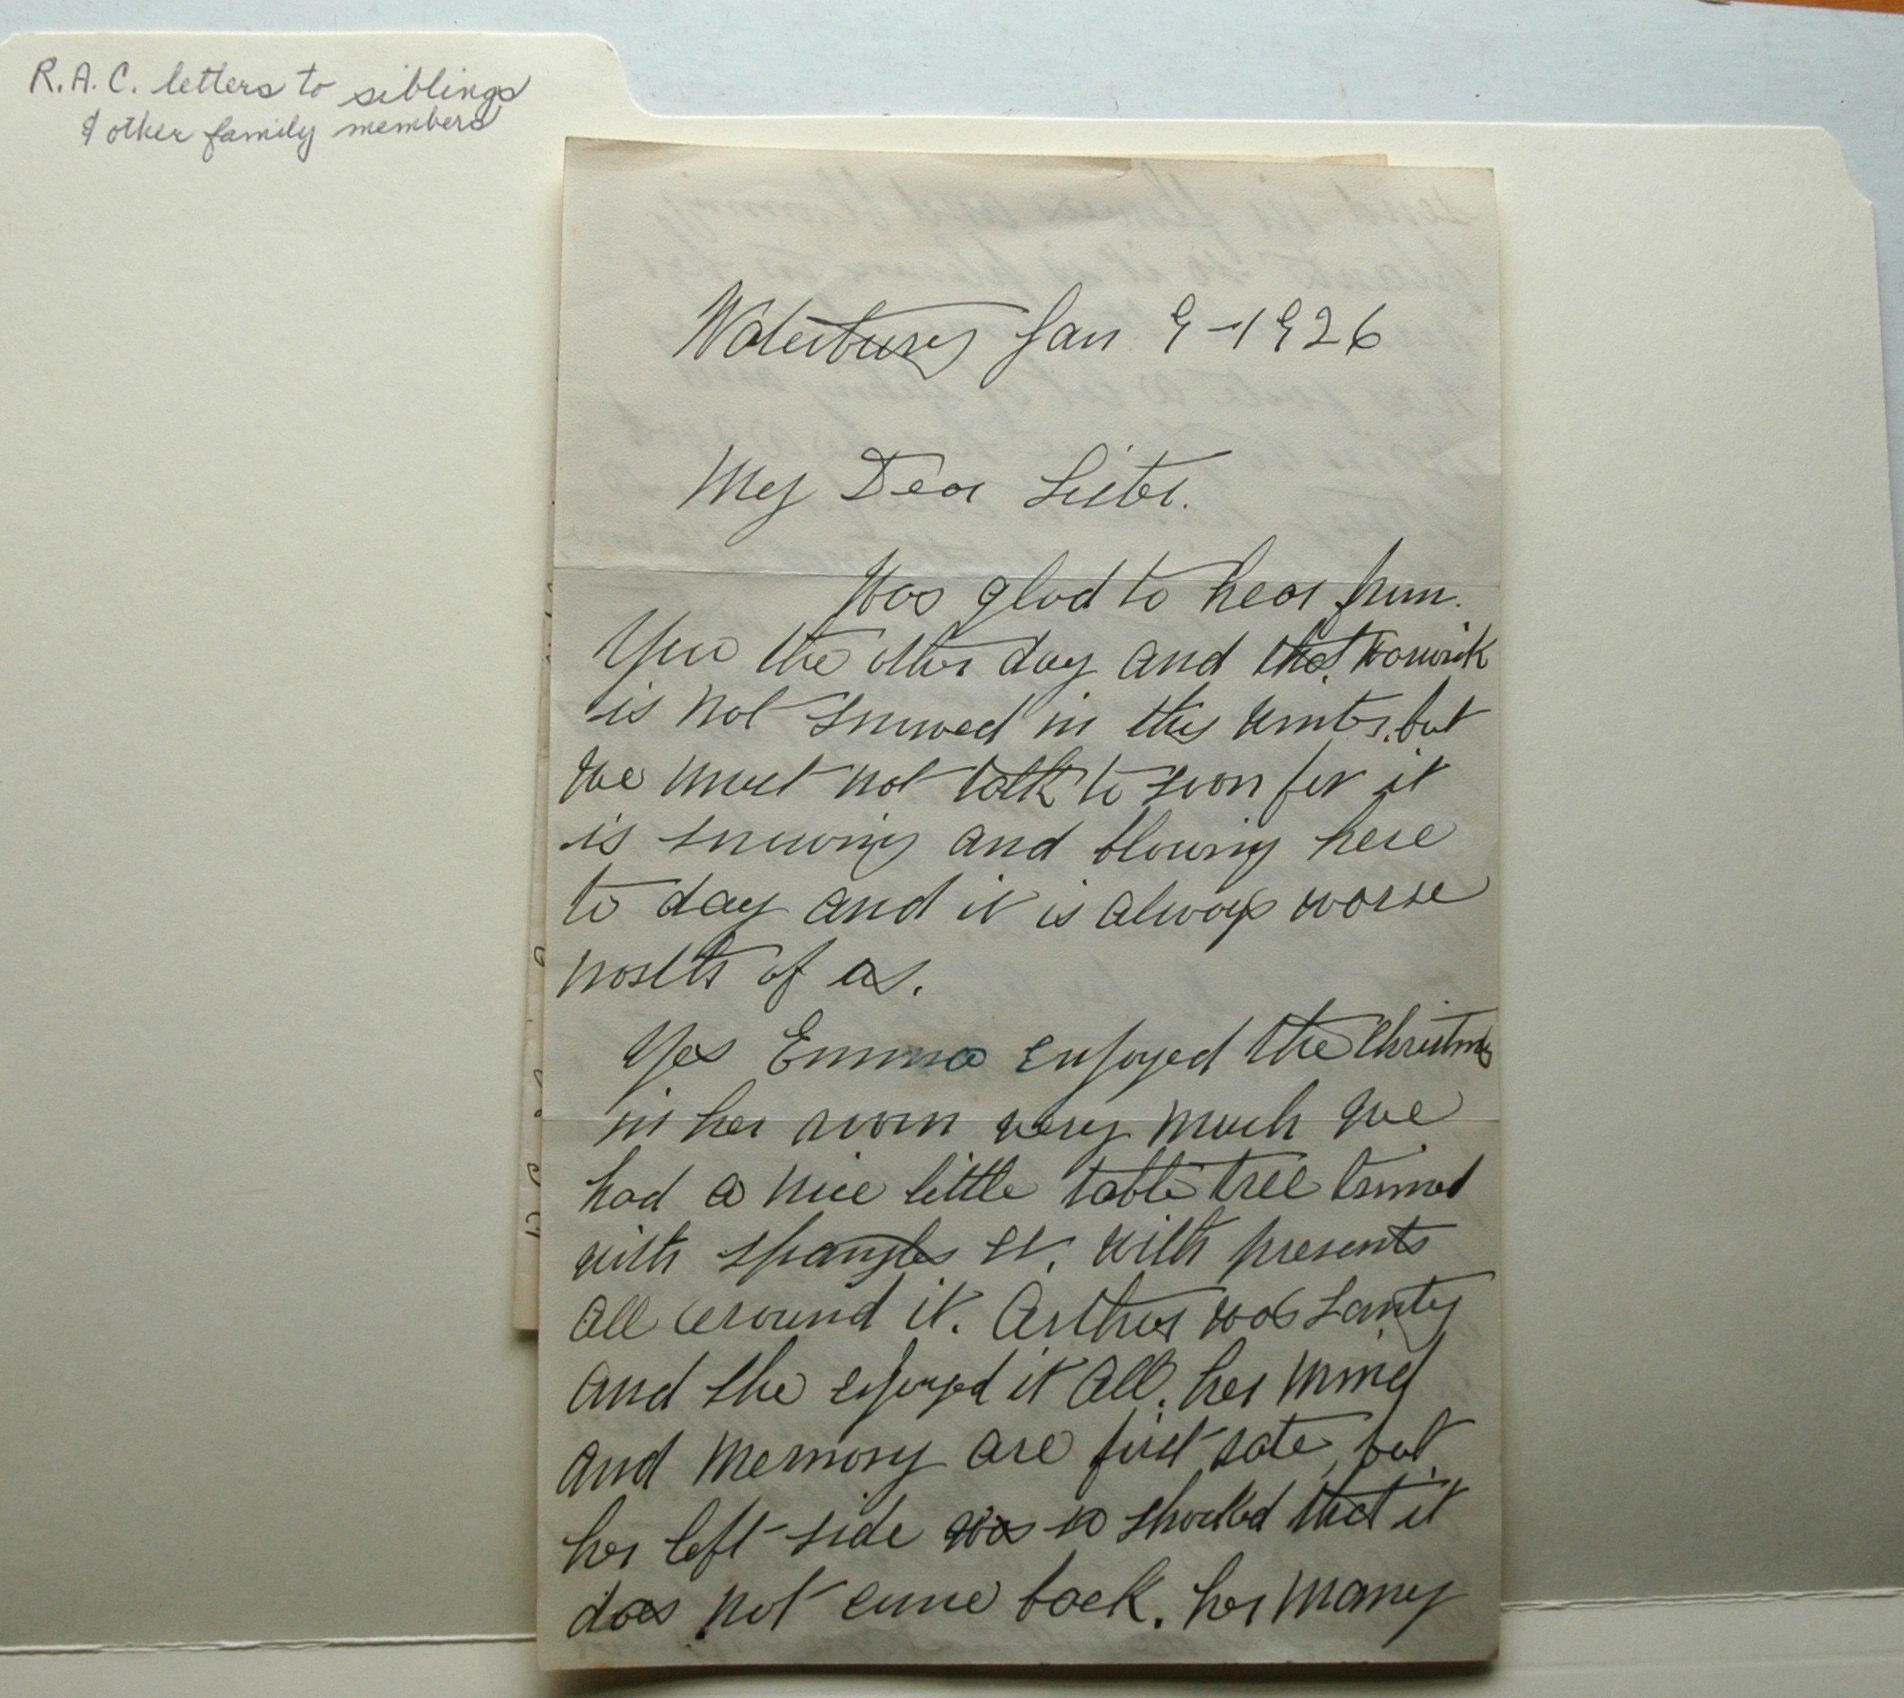 R.A.C. letters to siblings
& other family members
Waterbury Jan 9-1926
My Dear Sister.
Was glad to hear from.
You the other day and that Warwick
is not snowed in this winter. but
we must not talk to soon for it
is snowing and blowing here
to day and it is always worse
north of us.
Yes Emma enjoyed the Christmas
in her room very much we
had a nice little table tree trimed
with spangles et. with presents
all around it. Arthur was Santy
and she enjoyed it all. her mind
and memory are first rate, but
her left side was so shocked that it
does not come back. her many